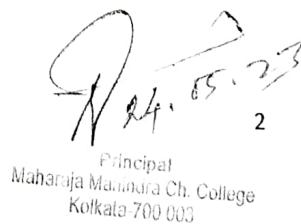 24.05.23
2
Principal
Maharaja Manindra Ch. College
Kolkata-700 003